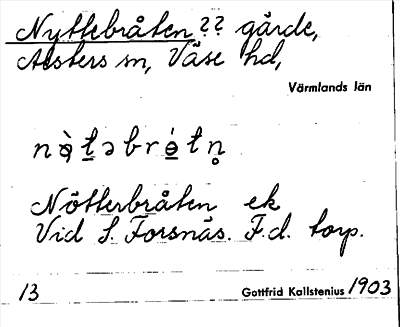 Nyttebråten ?? gärde,
Alsters sn, Väse hd,
Värmlands län
Nötterbråten ek
Vid S. Forsnäs. F.d. torp.
13 Gottfrid Kallstenius 1903